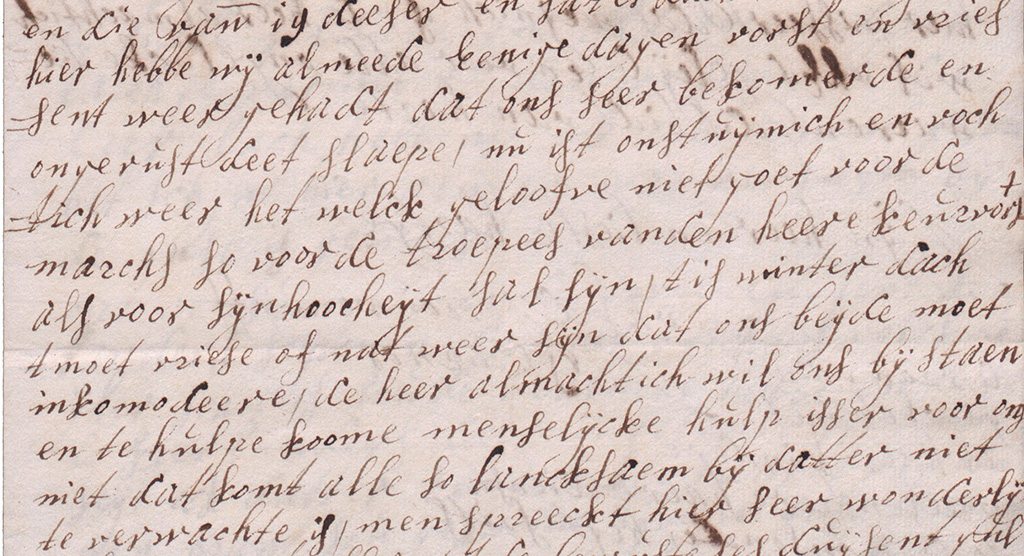 en die van 19 deeser en
hier hebbe wij almeede eenige dagen vorst en vries
sent weer gehadt dat ons seer bekomerde en
ongerust deet slaepe / nu ist onstuijmich en voch
tich weer het welck geloofve niet goet voor de
marchs so voor de troepees vanden heere keurvorst
als voor sijn hoocheijt sal sijn / t is winter dach
t moet vriese of nat weer sijn dat ons beijde moet
inkomodeere / de heer almachtich wil ons bij staen
en te hulpe koome menselijcke hulp isser voor ons
niet dat komt alle so lancksaem bij datter niet
te verwachte is / men spreeckt hier seer wonderlij